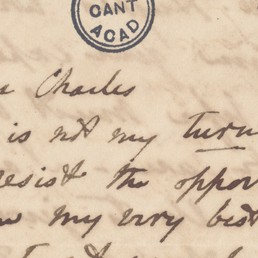 CANT
ACAD
Charles
is not my turn
resist the oppor
my very best